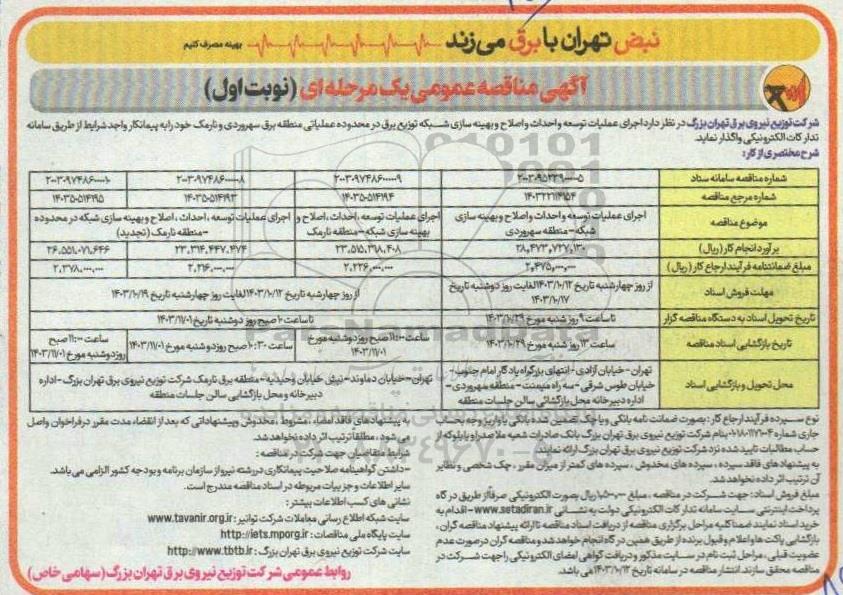 نبض تهران با برق می زند بهینه مصرف کنیم
آگهی مناقصه عمومی یک مرحله ای (نوبت اول)
شرکت توزیع نیروی برق تهران بزرگ در نظر دارد اجرای عملیات توسعه و احداث و اصلاح و بهینه سازی شبکه توزیع برق در محدوده عملیاتی منطقه برق سهروردی و نارمک خود را به پیمانکار واجد شرایط از طریق سامانه
تدارکات الکترونیکی واگذار نماید.
شرح مختصری از کار:
شماره مناقصه سامانه ستاد ۲۰۰۳۰۹۵۲۲۹۰۰۰۰۰۵ ۲۰۰۳۰۹۷۴۸۶۰۰۰۰۰۹ ۲۰۰۳۰۹۷۴۸۶۰۰۰۰۰۸ ۲۰۰۳۰۹۷۴۸۶۰۰۰۰۱۰
شماره مرجع مناقصه ۱۴۰۳۲۲۱۴۱۵۴ ۱۴۰۳۵۰۵۱۴۱۹۴ ۱۴۰۳۵۰۵۱۴۱۹۳ ۱۴۰۳۵۰۵۱۴۱۹۵
موضوع مناقصه اجرای عملیات توسعه و احداث و اصلاح و بهینه سازی شبکه -منطقه سهروردی اجرای عملیات توسعه ،احداث، اصلاح و بهینه سازی شبکه-منطقه نارمک اجرای عملیات توسعه ،احداث ، اصلاح و بهینه سازی شبکه در محدوده -منطقه نارمک (تجدید)
برآورد انجام کار (ریال) ۲۸,۴۷۳,۷۲۷,۱۳۰ ۲۳,۵۱۵,۳۱۸,۴۰۸ ۲۳,۳۱۴,۴۴۷,۴۷۴ ۲۶,۵۵۱,۰۷۱,۶۴۶
مبلغ ضمانتنامه فرآیند ارجاع کار (ریال) ۲,۴۷۵,۰۰۰,۰۰۰ ۲,۲۲۶,۰۰۰,۰۰۰ ۲,۲۱۶,۰۰۰,۰۰۰ ۲,۳۷۸,۰۰۰,۰۰۰
مهلت فروش اسناد از روز چهارشنبه تاریخ ۱۴۰۳/۱۰/۱۲ لغایت روز دوشنبه تاریخ ۱۴۰۳/۱۰/۱۷ از روز چهارشنبه تاریخ ۱۴۰۳/۱۰/۱۲ لغایت روز چهارشنبه تاریخ ۱۴۰۳/۱۰/۱۹
تاریخ تحویل اسناد به دستگاه مناقصه گزار تا ساعت ۹ روز شنبه مورخ ۱۴۰۳/۱۰/۲۹ تا ساعت ۱۰ صبح روز دوشنبه تاریخ ۱۴۰۳/۱۱/۰۱
تاریخ بازگشایی اسناد مناقصه ساعت ۱۳ روز شنبه مورخ ۱۴۰۳/۱۰/۲۹ ساعت ۱۱:۰۰ صبح روز دوشنبه مورخ ۱۴۰۳/۱۱/۰۱ ساعت ۱۰:۳۰ صبح روز دوشنبه مورخ ۱۴۰۳/۱۱/۰۱ ساعت ۱۱:۰۰ صبح روز دوشنبه مورخ ۱۴۰۳/۱۱/۰۱
محل تحویل و بازگشایی اسناد تهران - خیابان آزادی - انتهای بزرگراه یادگار امام جنوب - خیابان طوس شرقی - سه راه میمنت - منطقه سهروردی - اداره دبیرخانه محل بازگشائی سالن جلسات منطقه تهران-خیابان دماوند-نبش خیابان وحیدیه-منطقه برق نارمک شرکت توزیع نیروی برق تهران بزرگ - اداره دبیرخانه و محل بازگشایی سالن جلسات منطقه
نوع سپرده فرآیند ارجاع کار : بصورت ضمانت نامه بانکی و یا چک تضمین شده بانکی یا واریز وجه بحساب
جاری شماره بنام شرکت توزیع نیروی برق تهران بزرگ بانک صادرات شعبه ملاصدرا و یا بلوکه از
حساب مطالبات تایید شده نزد شرکت توزیع نیروی برق تهران بزرگ ارائه نمایند.
به پیشنهادهای فاقد سپرده ، سپرده های مخدوش ، سپرده های کمتر از میزان مقرر ، چک شخصی و نظایر
آن ترتیب اثر داده نخواهد شد.
مبلغ فروش اسناد : جهت شرکت در مناقصه ، مبلغ ۱,۵۰۰,۰۰۰ ریال بصورت الکترونیکی صرفاً از طریق درگاه
پرداخت اینترنتی سایت سامانه تدارکات الکترونیکی دولت به نشانی www.setadiran.ir - اقدام به
خرید اسناد نمایند ضمناً کلیه مراحل برگزاری مناقصه از دریافت اسناد مناقصه تا ارائه پیشنهاد مناقصه گران ،
بازگشایی پاکت ها و اعلام و قبول برنده از طریق همین درگاه انجام خواهد شد و مناقصه گران در صورت عدم
عضویت قبلی ، مراحل ثبت نام در سایت مذکور و دریافت گواهی امضای الکترونیکی را جهت شرکت در
مناقصه محقق سازند انتشار مناقصه در سامانه تاریخ ۱۴۰۳/۱۰/۱۲ می باشد.
به پیشنهادهای فاقد امضاء ، مشروط ، مخدوش و پیشنهاداتی که بعد از انقضاء مدت مقرر در فراخوان واصل
می شود ، مطلقاً ترتیب اثر داده نخواهد شد.
شرایط متقاضیان جهت شرکت در مناقصه :
-داشتن گواهینامه صلاحیت پیمانکاری در رشته نیرو از سازمان برنامه و بودجه کشور الزامی می باشد.
سایر اطلاعات و جزییات مربوطه در اسناد مناقصه مندرج است.
نشانی های کسب اطلاعات بیشتر :
سایت شبکه اطلاع رسانی معاملات شرکت توانیر : www.tavanir.org.ir
سایت پایگاه ملی مناقصات : http://iets.mporg.ir
سایت شرکت توزیع نیروی برق تهران بزرگ : http://www.tbtb.ir
روابط عمومی شرکت توزیع نیروی برق تهران بزرگ (سهامی خاص)